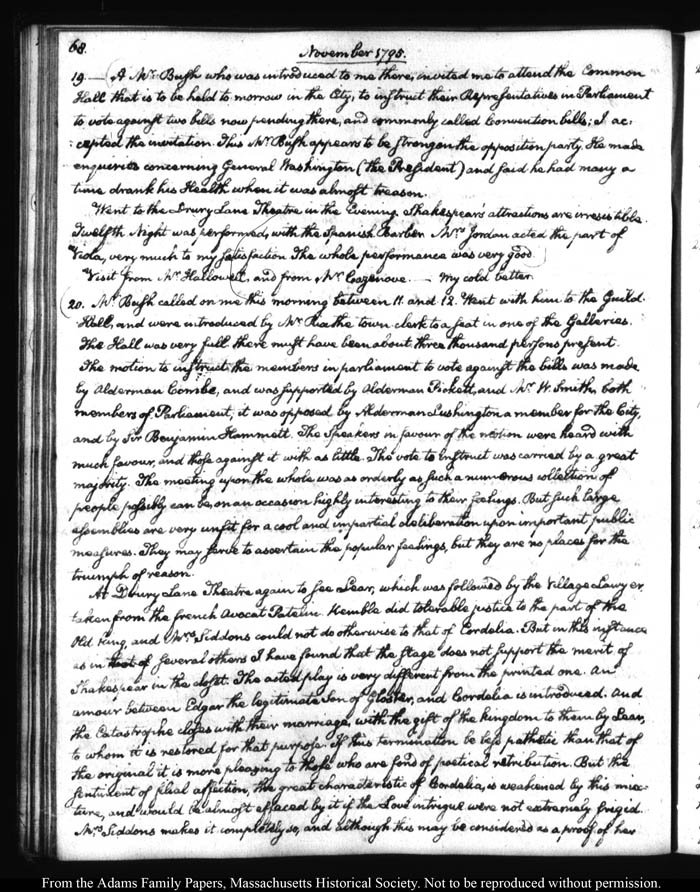 68.
November 1795.
19. — A Mr. Bush who was introduced to me there, invited me to attend the Common
Hall that is to be held to-morrow in the City, to instruct their Representatives in Parliament
to vote against two bills now pending there, and commonly called Convention bills; I ac:
:cepted the invitation. This Mr. Bush appears to be strong on the opposition party. He made
enquiries concerning General Washington (the President) and said he had many a
time drank his Health when it was almost treason.
Went to the Drury Lane Theatre in the Evening. Shakespear's attractions are irresistible.
Twelfth Night was performed, with the Spanish Barber. Mrs. Jordan acted the part of
Viola, very much to my satisfaction. The whole performance was very good.
Visit from Mr. Hallowell, and from Mr. Cazenove. — My cold better.
20. Mr. Bush called on me this morning between 11. and 12. Went with him to the Guild.
Hall, and were introduced by Mr. Rix the town clerk to a seat in one of the Galleries.
The Hall was very full. there must have been about three thousand persons present.
The motion to instruct the members in parliament to vote against the bills was made
by Alderman Combe, and was supported by Alderman Pickett, and Mr. W. Smith, both
members of Parliament, it was opposed by Alderman Lushington a member for the City,
and by Sir Benjamin Hammett. The Speakers in favour of the motion were heard with
much favour, and those against it with as little. The vote to instruct was carried by a great
majority. The meeting upon the whole was as orderly as such a numerous collection of
people possibly can be, on an occasion highly interesting to their feelings. But such large
assemblies are very unfit for a cool and impartial deliberation upon important public
measures. They may serve to ascertain the popular feelings, but they are no places for the
triumph of reason.
At Drury Lane Theatre again to see Lear, which was followed by the Village Lawyer
taken from the french Avocat Patelin. Kemble did tolerable justice to the part of the
Old King, and Mrs. Siddons could not do otherwise to that of Cordelia. But in this instance
as in that of several others I have found that the Stage does not support the merit of
Shakespear in the closet. The acted play is very different from the printed one. An
amour between Edgar the legitimate Son of Gloster, and Cordelia is introduced. And
the Catastrophe closes with their marriage, with the gift of the kingdom to them by Lear,
to whom it is restored for that purpose. If this termination be less pathetic than that of
the original it is more pleasing to those who are fond of poetical retribution. But the
sentiment of filial affection, the great characteristic of Cordelia, is weakened by this mix:
ture, and would be almost effaced by it if the Love intrigue were not extremely frigid.
Mrs. Siddons makes it completely so, and although this may be considered as a proof of her
From the Adams Family Papers, Massachusetts Historical Society. Not to be reproduced without permission.